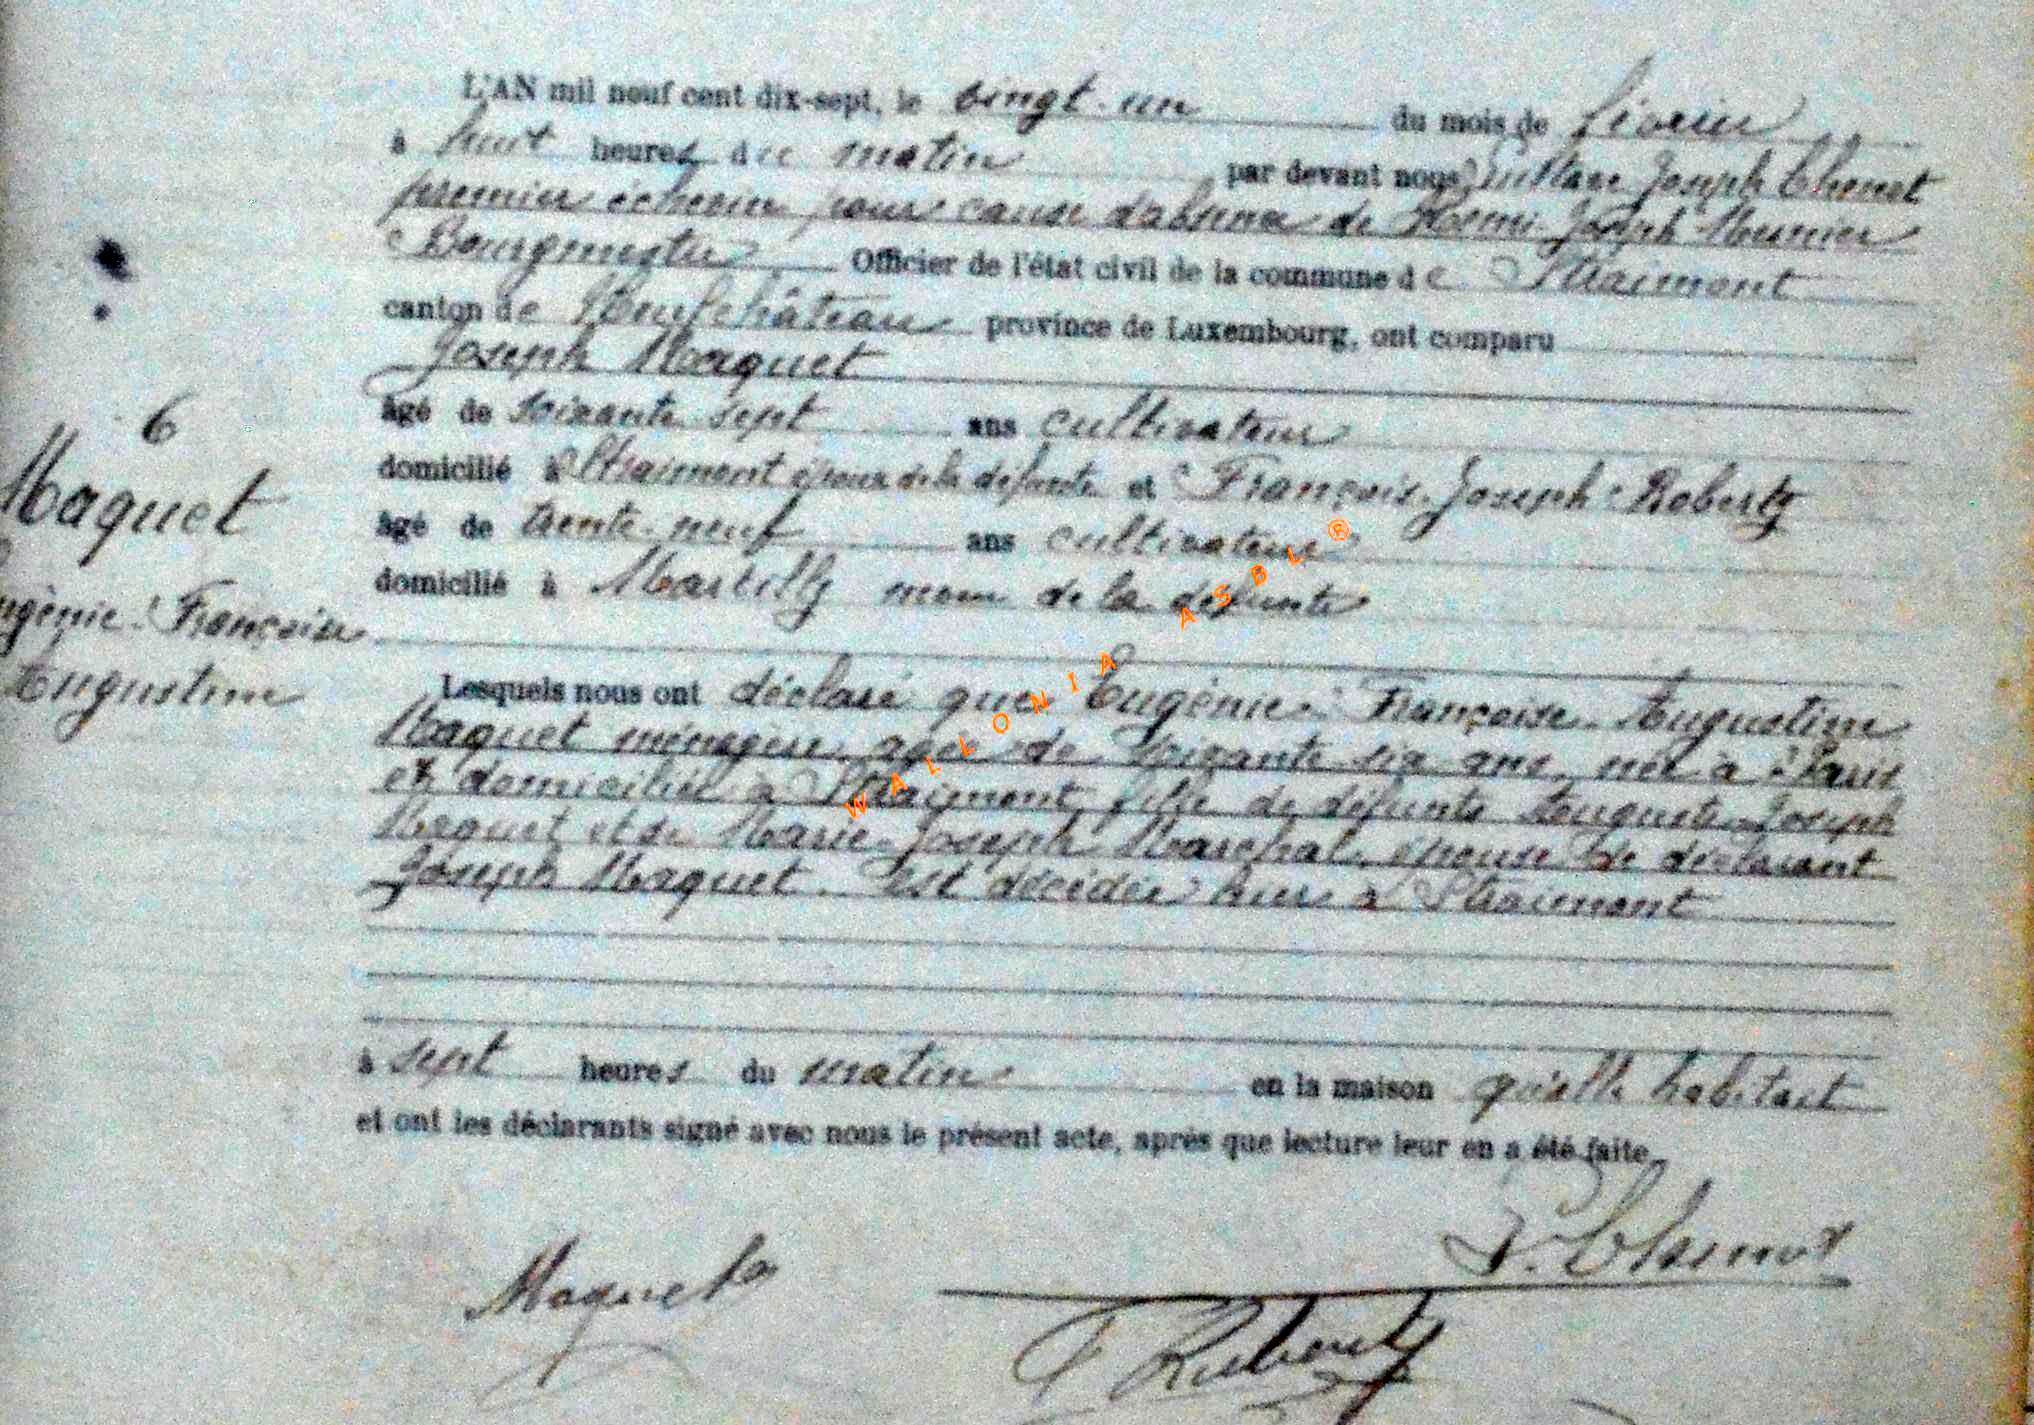 L'AN mil neuf cent dix-sept, le vingt-un du mois de février
à huit heures du matin par devant nous Joseph
premier échevin pour cause d'absence de Henri Joseph
Bourgmestre Officier de l'état civil de la commune de Straimont
canton de Neufchâteau province de Luxembourg, ont comparu
Joseph Maquet
6
âgé de soixante sept ans cultivateur
Maquet
domicilié à Straimont époux de la défunte et François-Joseph Roberty
âgé de trente-neuf ans cultivateur
domicilié à Martilly de la défunte
Eugénie-Françoise
Augustine
Lesquels nous ont déclaré que Eugénie-Françoise Augustine
Maquet ménagère âgée de soixante six ans, née à Paris
et domiciliée à Straimont fille de défunts Auguste Joseph
Maquet et de Marie-Joseph Marchal, épouse de déclarant
Joseph Maquet. Est décédée hier à Straimont
à sept heures du matin en la maison qu'elle habitait
et ont les déclarants signé avec nous le présent acte, après que lecture leur en a été faite
Maquet
WALLONIA ASBL ®